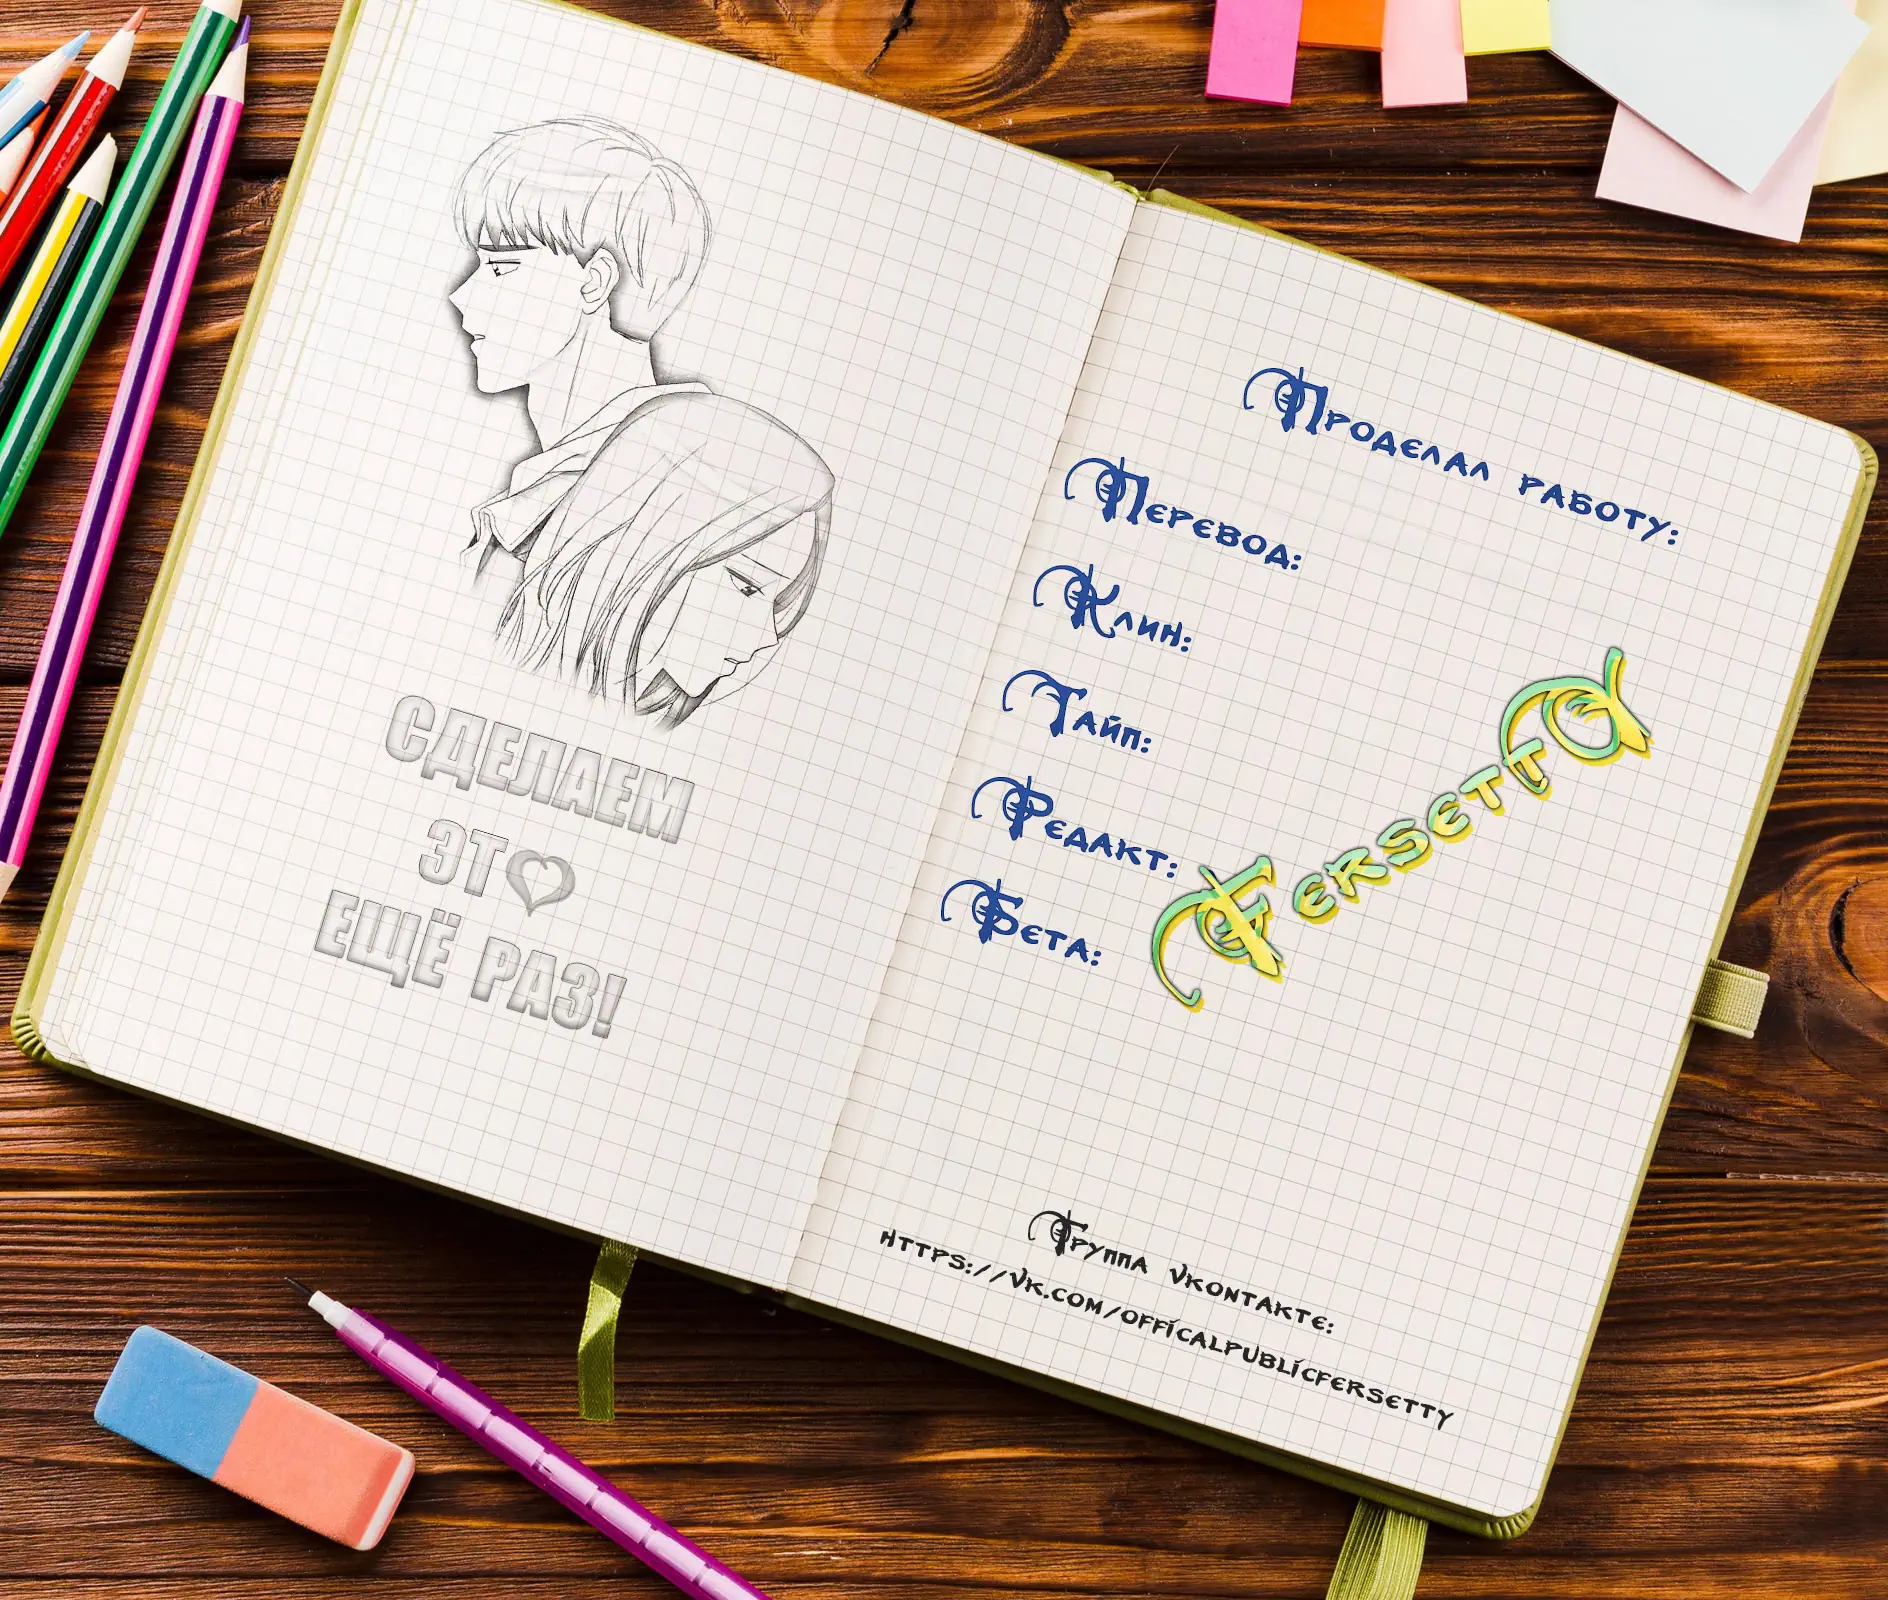 СДЕЛАЕМ
ЭТ♡
ЕЩЁ РАЗ!
Проделал работу:
Перевод:
Клин:
Тайп:
Редакт:
Бета:
Fersetty
Группа vkontakte:
https://vk.com/officalpublicfersetty